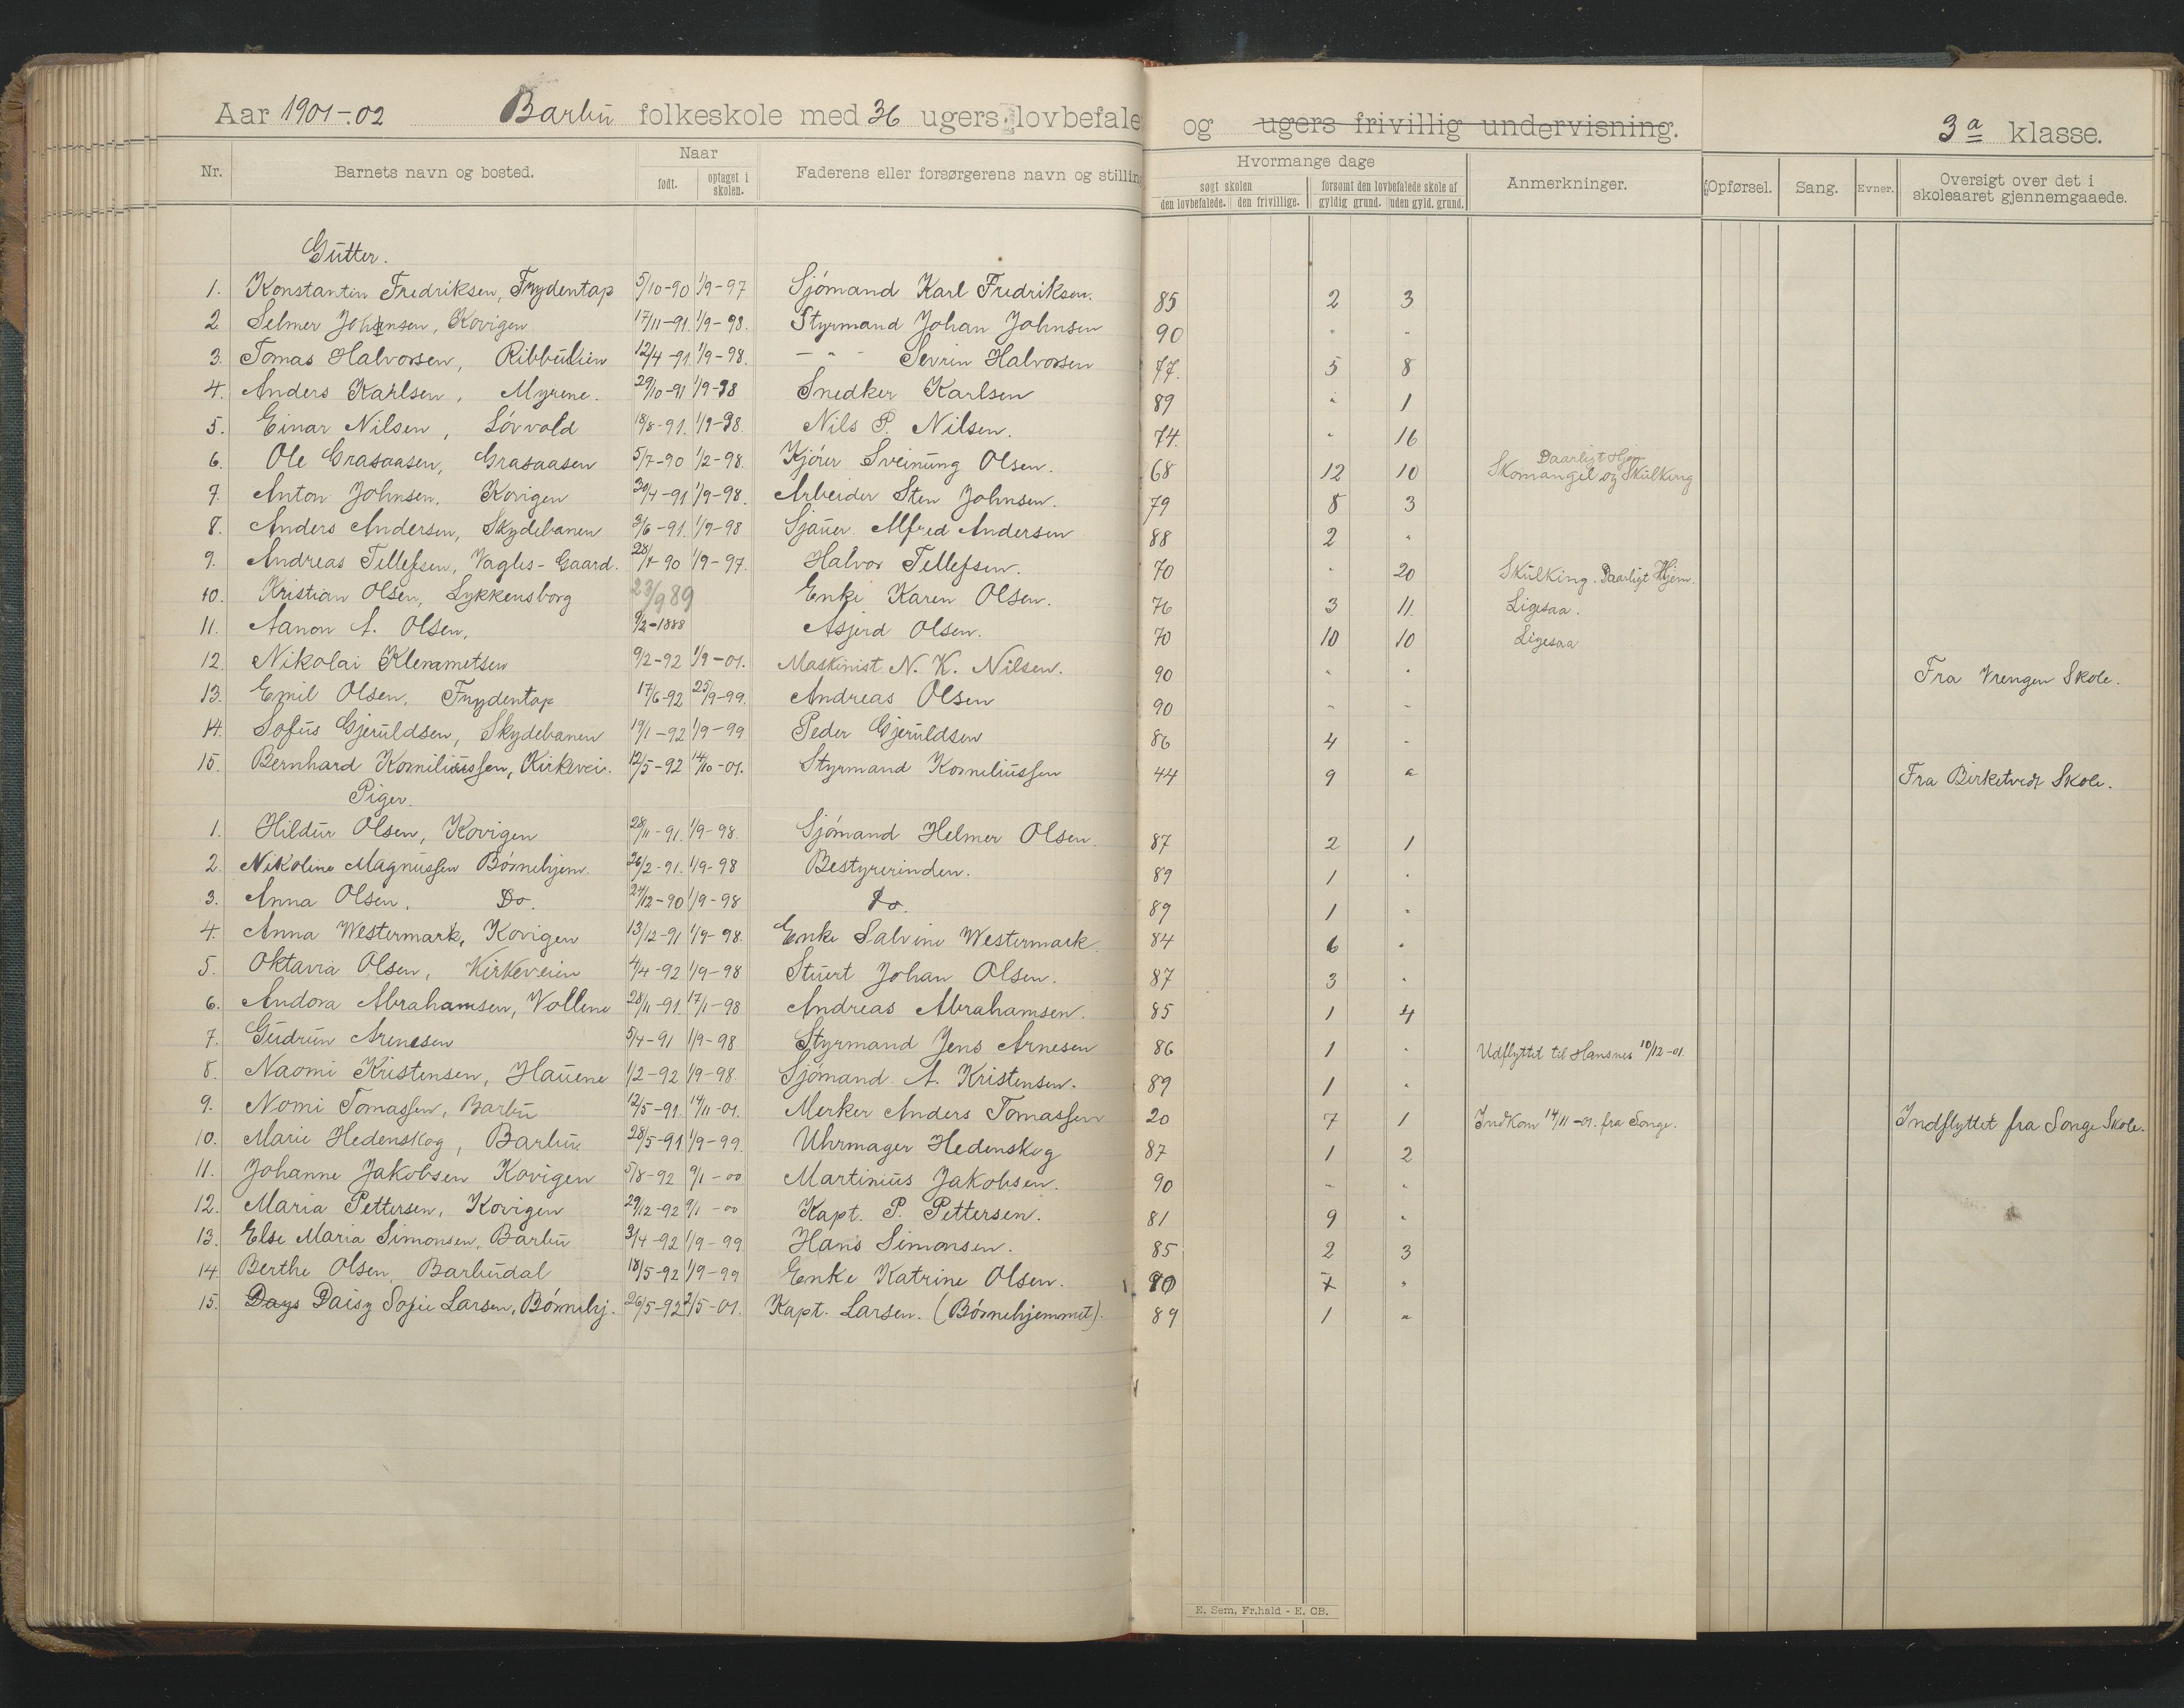 Aar 1901-02 Barbu folkeskole med 36 ugers lovbefale og ugers frivillig undervisning. 3 a klasse.
Nr. Barnets navn og bosted. Naar født. optaget i skolen. Faderens eller forsørgerens navn og stillin Hvormange dage søgt skolen den lovbefalede. den frivillige. forsømt den lovbefalede skole af gyldig grund. uden gyld. grund. Anmerkninger. Opførsel. Sang. Evner. Oversigt over det i skoleaaret gjennemgaaede.
Gutter.
1. Konstantin Fredriksen, Frydentop 5/10-90 1/9-97 Sjómand Karl Fredriksen. 85 2 3
2 Selmer Johnsen, Kovigen 17/11-91. 1/9-98. Styrmand Johan Johnsen 90 " "
3. Tomas Halvorsen, Ribbulien 12/4-91. 1/9-98. — " - Sevrin Halvorsen 77. 5 8
4. Anders Karlsen, Myrene. 29/10-91 1/9-98 Snedker Karlsen 89 " 1
5. Einar Nilsen, Lóvvold 18/8-91. 1/9-98. Nils P. Nilsen. 74. " 16
6. Ole Grasaasen, Grasaasen 5/7-90 1/2-98. Kjórer Sveinung Olsen. 68 12 10 Skomangel og Skulking Daarligt Hjem
7. Anton Johnsen. Kovigen 30/4-91 1/9-98. Arbeider Sten Johnsen. 79 8 3
8. Anders Andersen, Skydebanen 3/6-91. 1/9-98 Sjauer. Alfred Andersen 88 2 "
9. Andreas Tellefsen, Vagles-Gaard. 28/7-90 1/9-97. Halvor Tellefsen. 70 " 20 Skulking. Daarligt Hjem.
10. Kristian Olsen, Lykkensborg 23/9 89 Enke Karen Olsen. 76 3 11. Ligesaa.
11. Aanon A. Olsen, 9/2-1888 Asjerd Olsen. 70 10 10 Ligesaa
12. Nikolai Klemmetsen 9/2-92 1/9-01. Maskinist N. K. Nilsen. 90 " " Fra Vrengen Skole.
13. Emil Olsen, Frydentop 17/6-92 25/9-99. Andreas Olsen 90 " "
14. Sofus Gjeruldsen, Skydebanen 19/1-92 1/9-99 Peder Gjeruldsen 86 4 "
15. Bernhard Korniliussen, Kirkevei. 12/5-92 14/10-01. Styrmand Korneliussen 44 9 " Fra Birketvedt Skole.
Piger.
1. Hildur Olsen, Kovigen 28/11-91. 1/9-98. Sjómand Helmer Olsen. 87 2 1
2. Nikoline Magnussen Bórnehjem. 26/2-91. 1/9-98 Bestyrerinden. 89 1 "
3. Anna Olsen. Do. 24/12-90 1/9-98 Do. 89 1 "
4. Anna Westermark, Kovigen 13/12-91 1/9-98. Enke Salvine Westermark. 84 6 "
5. Oktavia Olsen, Kirkeveien 4/4-92 1/9-98 Stuert Johan Olsen. 87 3 "
6. Andora Abrahamsen, Vollene 28/11-91. 17/1-98 Andreas Abrahamsen. 85 1 4
7. Gudrun Arnesen 5/4-91 1/9-98 Styrmand Jens Arnesen 86 1 " Udflyttet til Hansnes 10/12-01.
8. Naomi Kristensen, Hauene 1/2-92 1/9-98. Sjómand A. Kristensen. 89 1 "
9. Nomi Tomassen, Barbu 12/5-91. 14/11-01. Merker Anders Tomassen 20 7 1 Indkom 14/11-01. fra Songe. Indflyttet fra Songe Skole.
10. Marie Hedenskog, Barbu. 28/5-91 1/9-99. Uhrmager Hedenskog 87 1 2
11. Johanne Jakobsen Kovigen 5/8-92 9/1-00 Martinius Jakobsen. 90 " "
12. Maria Pettersen, Kovigen 29/12-92 9/1-00 Kapt. P. Pettersen. 81 9 "
13. Else Maria Simonsen, Barbu 3/4-92 1/9-99. Hans Simonsen. 85 2 3
14 Berthe Olsen, Barbudal 18/5-92 1/9-99 Enke Katrine Olsen. "
15. Days Daisy Sofie Larsen, Bórnehj. 26/5-92 2/5-01. Kapt. Larsen. (Bórnehjemmet). 89 1 "
E. Sem, Fr.hald - E. CB.